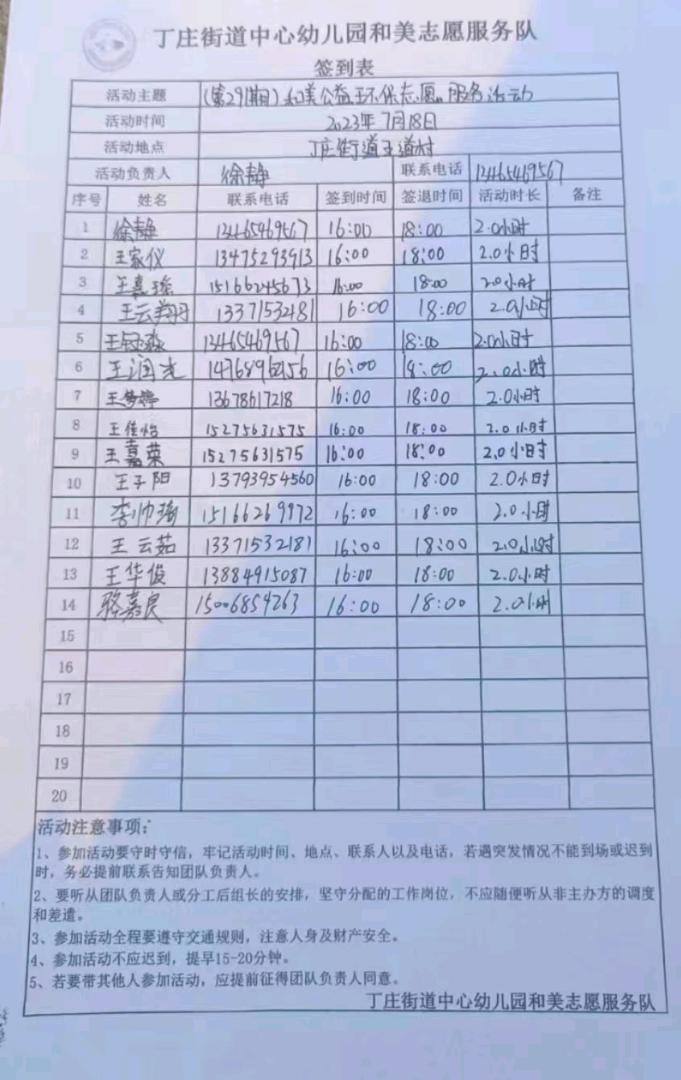 丁庄街道中心幼儿园和美志愿服务队
签到表
活动主题 (第291期) 和美公益环保志愿服务活动
活动时间 2023年7月18日
活动地点 丁庄街道王道村
活动负责人 徐静 联系电话 13465469567
序号 姓名 联系电话 签到时间 签退时间 活动时长 备注
1 徐静 13465469567 16:00 18:00 2.0小时
2 王家仪 13475293913 16:00 18:00 2.0小时
3 王嘉瑜 15166245673 16:00 18:00 2.0小时
4 王云翔 13371532181 16:00 18:00 2.0小时
5 13465469567 16:00 18:00 2.0小时
6 王润光 16:00 18:00 2.0小时
7 王梦婷 13678617218 16:00 18:00 2.0小时
8 王佳怡 15275631575 16:00 18:00 2.0小时
9 王嘉荣 15275631575 16:00 18:00 2.0小时
10 王子阳 13793954560 16:00 18:00 2.0小时
11 李帅 15166269972 16:00 18:00 2.0小时
12 王云茹 13371532181 16:00 18:00 2.0小时
13 王华俊 13884915087 16:00 18:00 2.0小时
14 骆嘉良 15006854263 16:00 18:00 2.0小时
15
16
17
18
19
20
活动注意事项:
1、参加活动要守时守信，牢记活动时间、地点、联系人以及电话，若遇突发情况不能到场或迟到
时，务必提前联系告知团队负责人。
2、要听从团队负责人或分工后组长的安排，坚守分配的工作岗位，不应随便听从非主办方的调度
和差遣。
3、参加活动全程要遵守交通规则，注意人身及财产安全。
4、参加活动不应迟到，提早15-20分钟。
5、若要带其他人参加活动，应提前征得团队负责人同意。
丁庄街道中心幼儿园和美志愿服务队